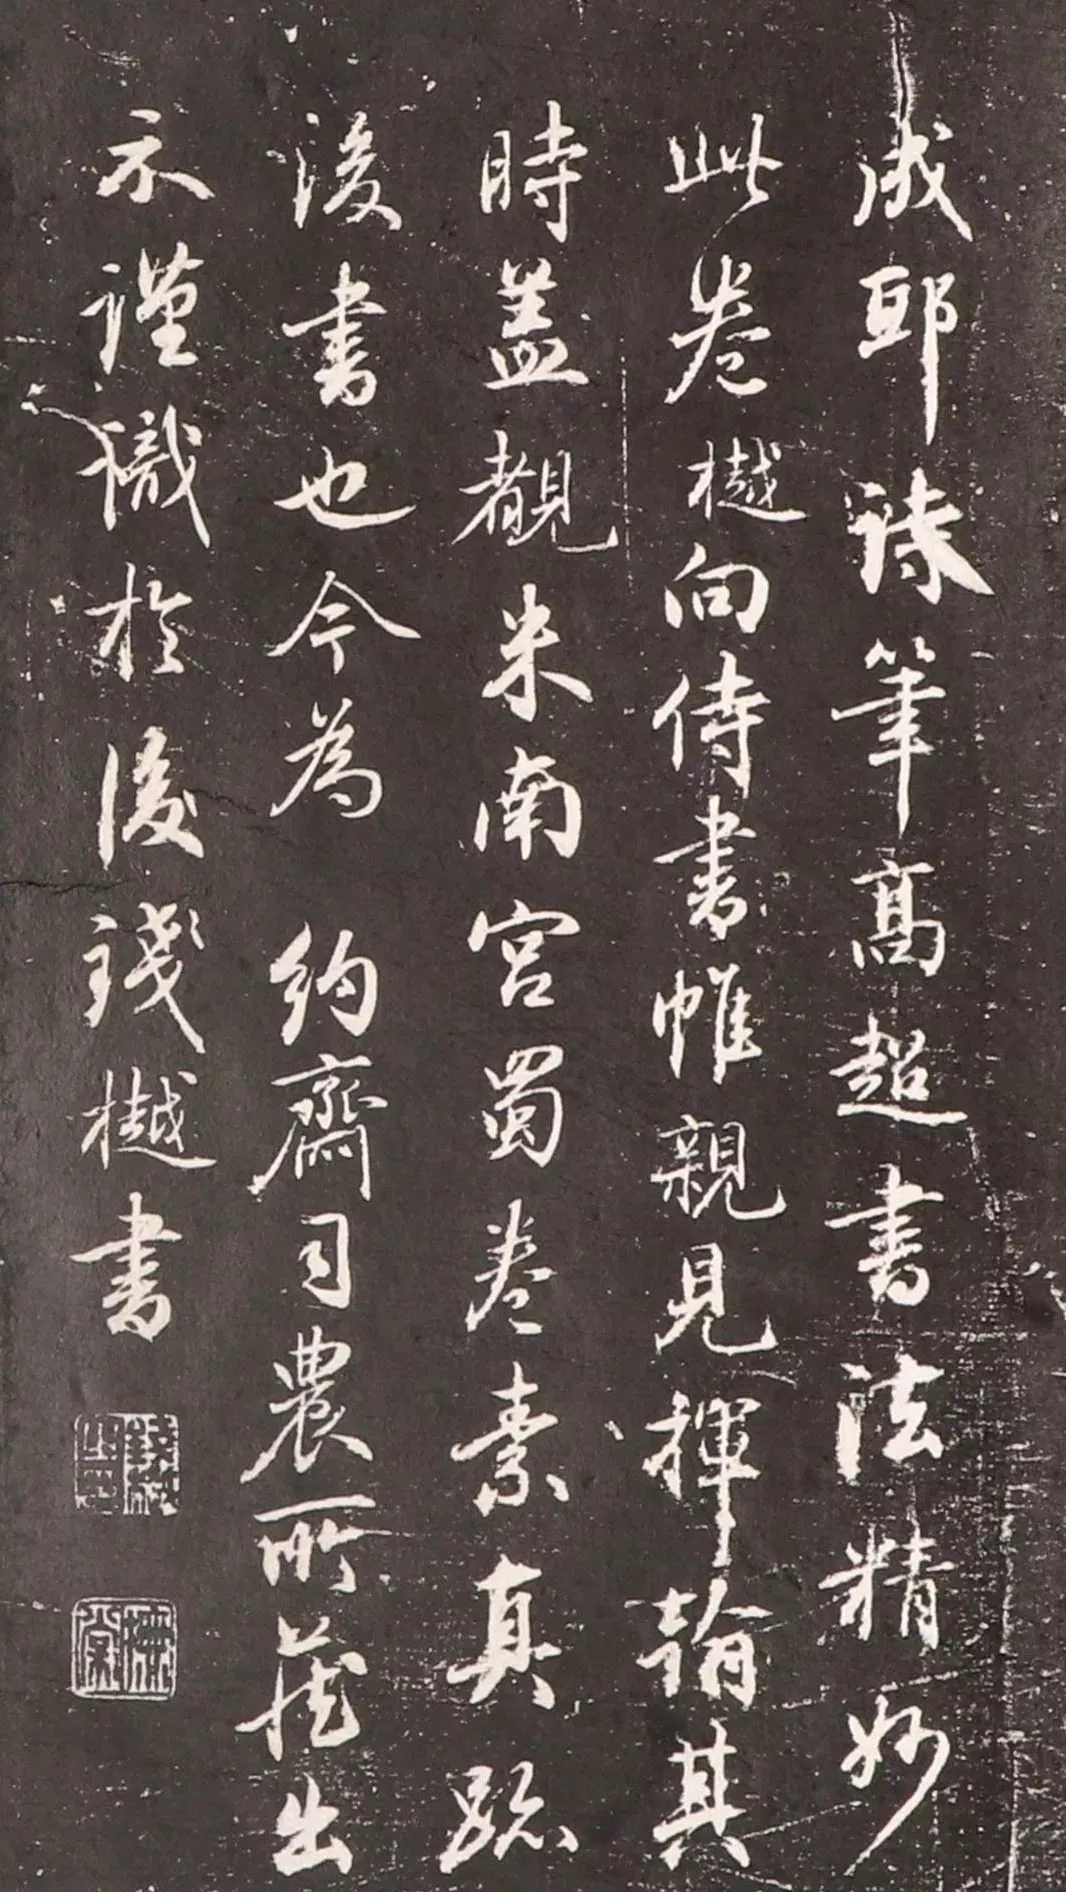 成邸詩筆高超書法精妙
此卷樾向侍書帷親見揮翰其
時蓋觀米南宮蜀卷素真跡
後書也今為 約齋司農所藏出
示謹識於後錢樾書